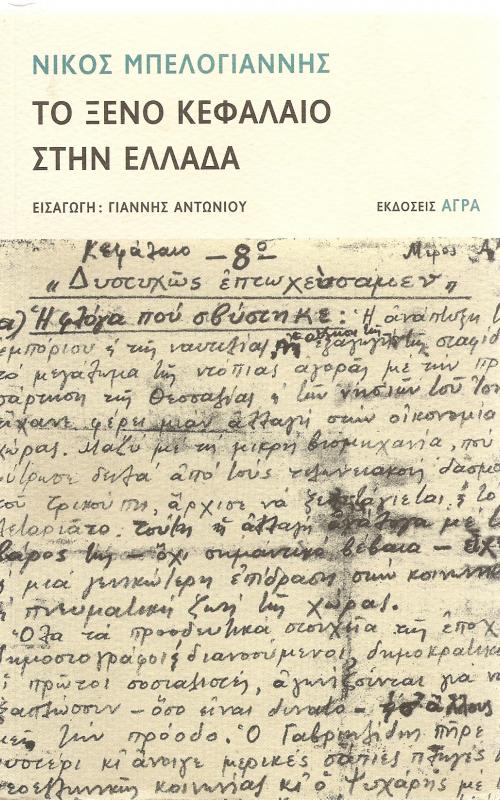 ΝΙΚΟΣ ΜΠΕΛΟΓΙΑΝΝΗΣ
ΤΟ ΞΕΝΟ ΚΕΦΑΛΑΙΟ
ΣΤΗΝ ΕΛΛΑΔΑ
ΕΙΣΑΓΩΓΗ: ΓΙΑΝΝΗΣ ΑΝΤΩΝΙΟΥ ΕΚΔΟΣΕΙΣ ΑΓΡΑ
Κεφάλαιο — 8º — Μέρος Α
"Δυστυχῶς ἐπτωχεύσαμεν"
α) Ἡ φλόγα πού σβύστηκε: Ἡ ἀνάπτυξη
ἐμπορίου τῆς ναυτιλίας, ἐξαγωγή τῆς σταφίδ
τό μεγάλωμα τῆς ντόπιας ἀγορᾶς μέ τήν πρ
σάρτιση τῆς Θεσσαλίας τῶν νησιῶν τοῦ Ἰον
εἴχανε φέρει μιάν ἀλλαγή στήν οἰκονομία
χώρας. Μαζύ μέ τή μικρή βιομηχανία, πού
ἀπό τούς τελωνειακούς δασμο
τοῦ Τρικούπη, ἄρχισε νά τό
λεταριᾶτο. Τούτη ἡ ἀλλαγή ἀνάλογα μέ
βάρος της — ὄχι σημαντικό βέβαια — εἶχ
μιά γενικώτερη ἐπίδραση στήν κοινωνικ
πνευματική ζωή τῆς χώρας.
Ὅλα τά προοδευτικά στοιχεῖα τῆς ἐποχ
δημοσιογράφοι διανοούμενοι, δημοκρατικο
πρῶτοι σοσιαλιστές, ἀγωνίζονται γιά ν
— ὅσο εἶναι δυνατό —
τήν πρόοδο. Ὁ Γαβριηλίδης πῆρε
κι ἄνοιγε μερικές σάπιες πληγές
νεοελληνικῆς κοινωνίας κι ὁ Ψυχάρης μέ